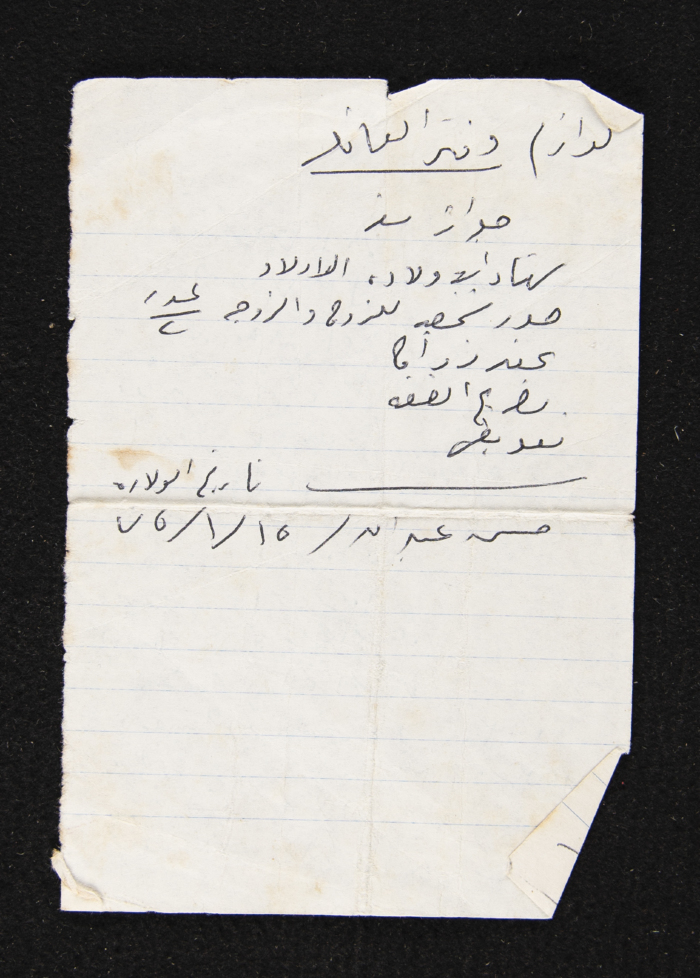 لوازم / دفتر العائلة
جواز سفر
شهادات ولادة الاولاد
صور شخصيه للزوج والزوجه عدد ٢
عقد زواج
تصريح الضفه
تعويض
تاريخ الولاده
حسن عبد الله / ١٥ / ١ / ٧٥